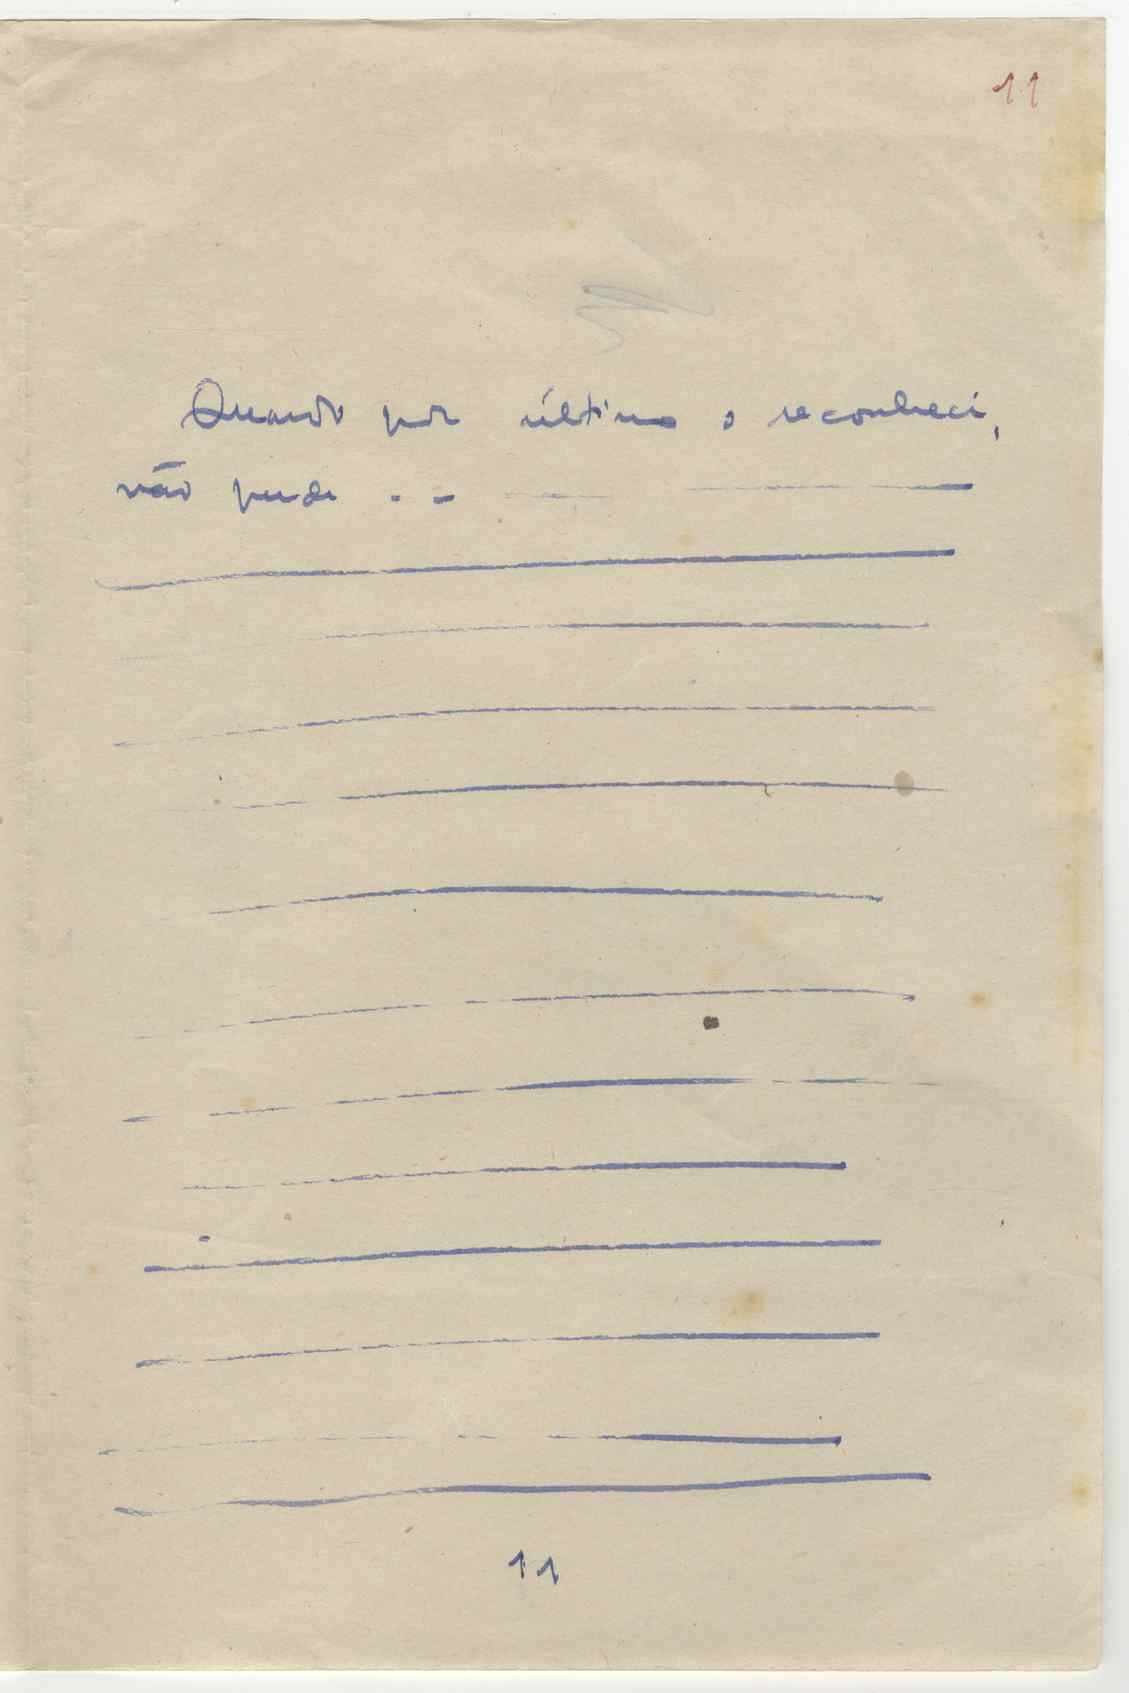 11
Quando por último o reconheci,
não pude . .
11